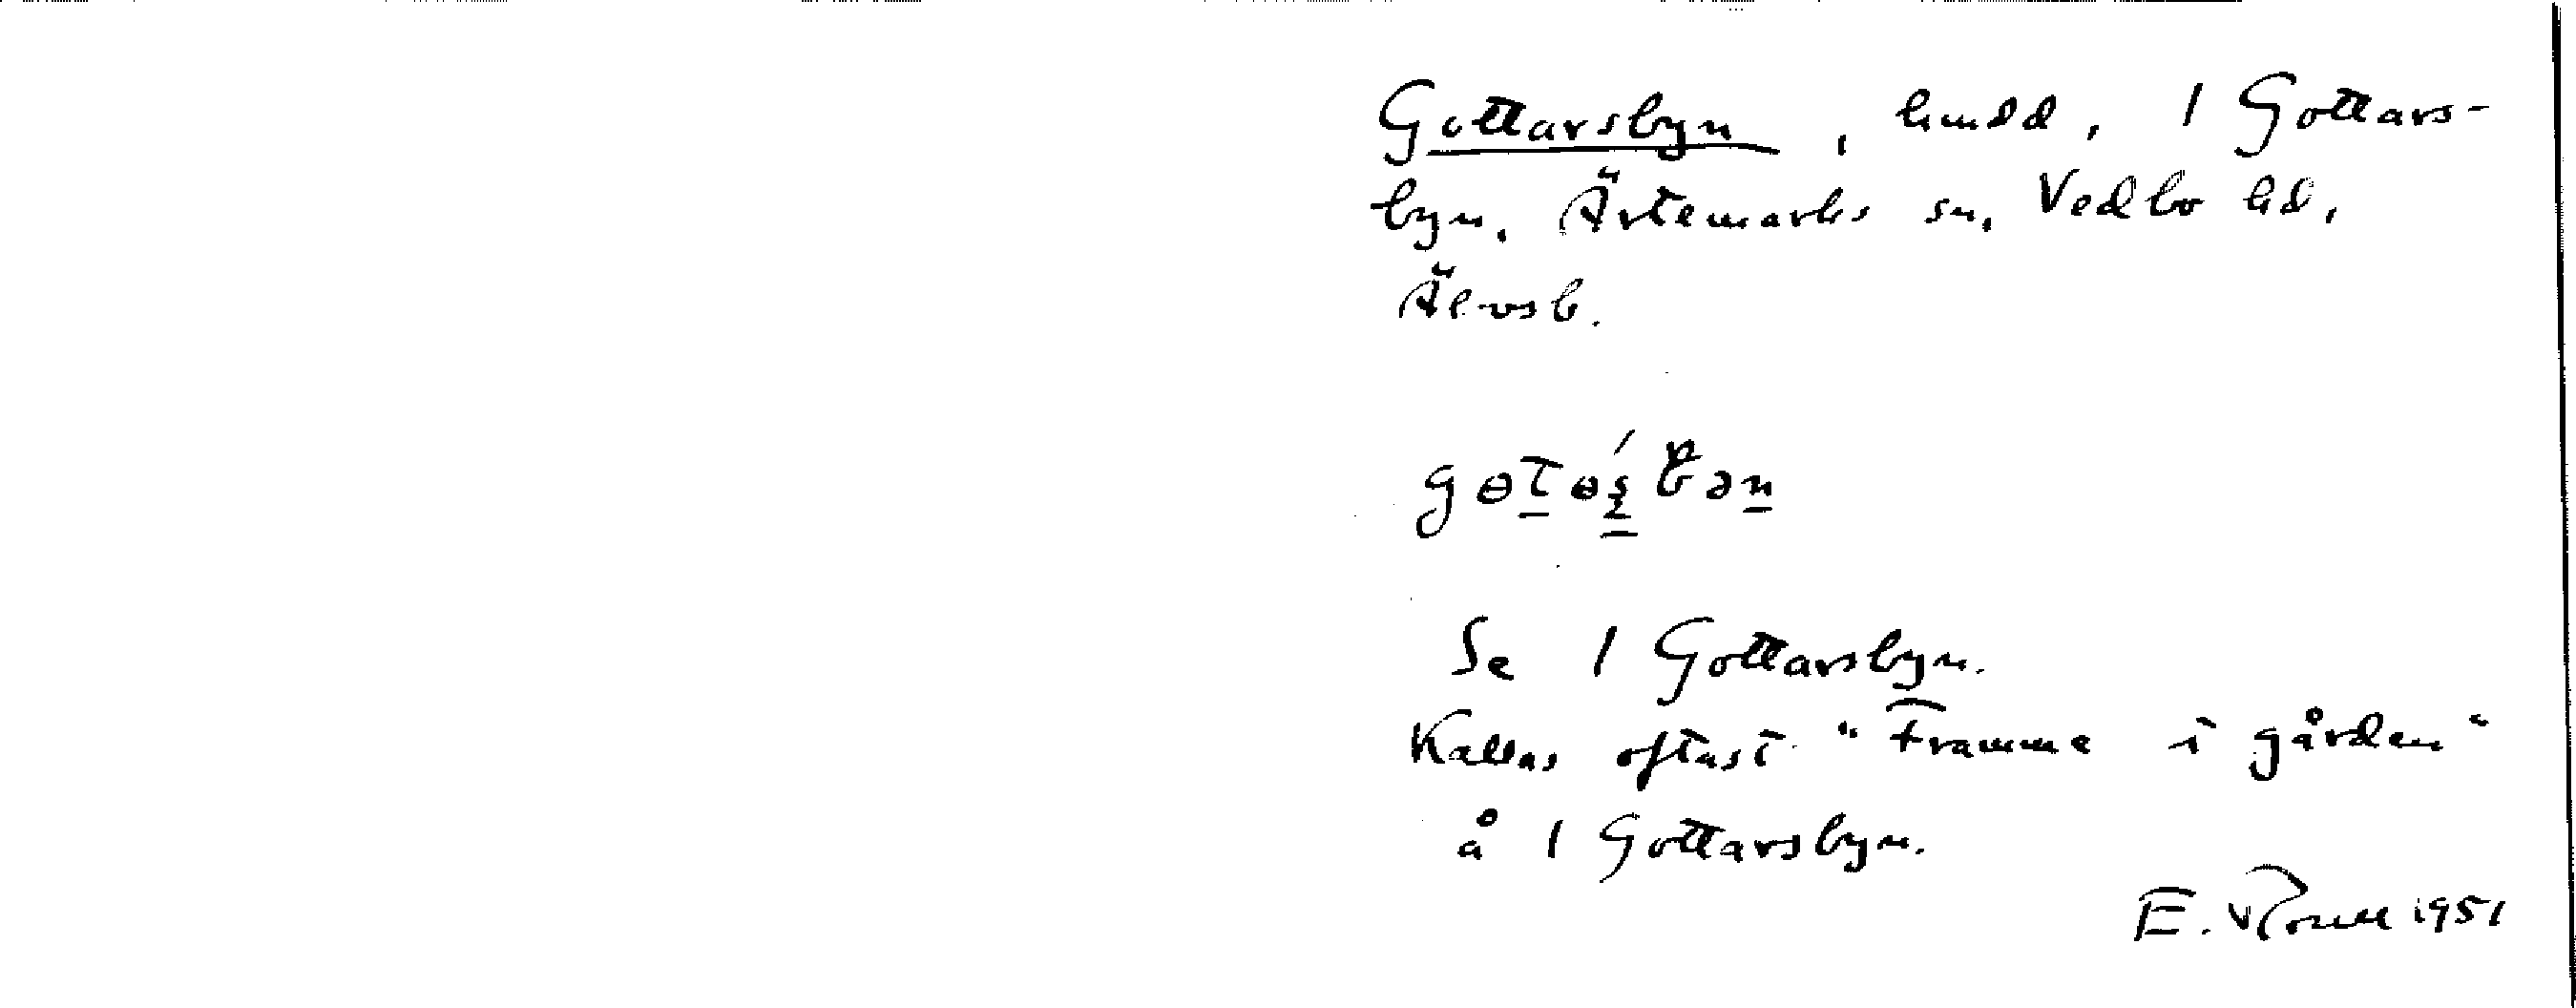 Gottarsbyn, hmdd, 1 Gottars-
byn. Ärtemarks sn, Vedbo hd,
Älvsb.
Se 1 Gottarsbyn.
Kallas oftast "Framme i gården"
å 1 Gottarsbyn.
E. 1951